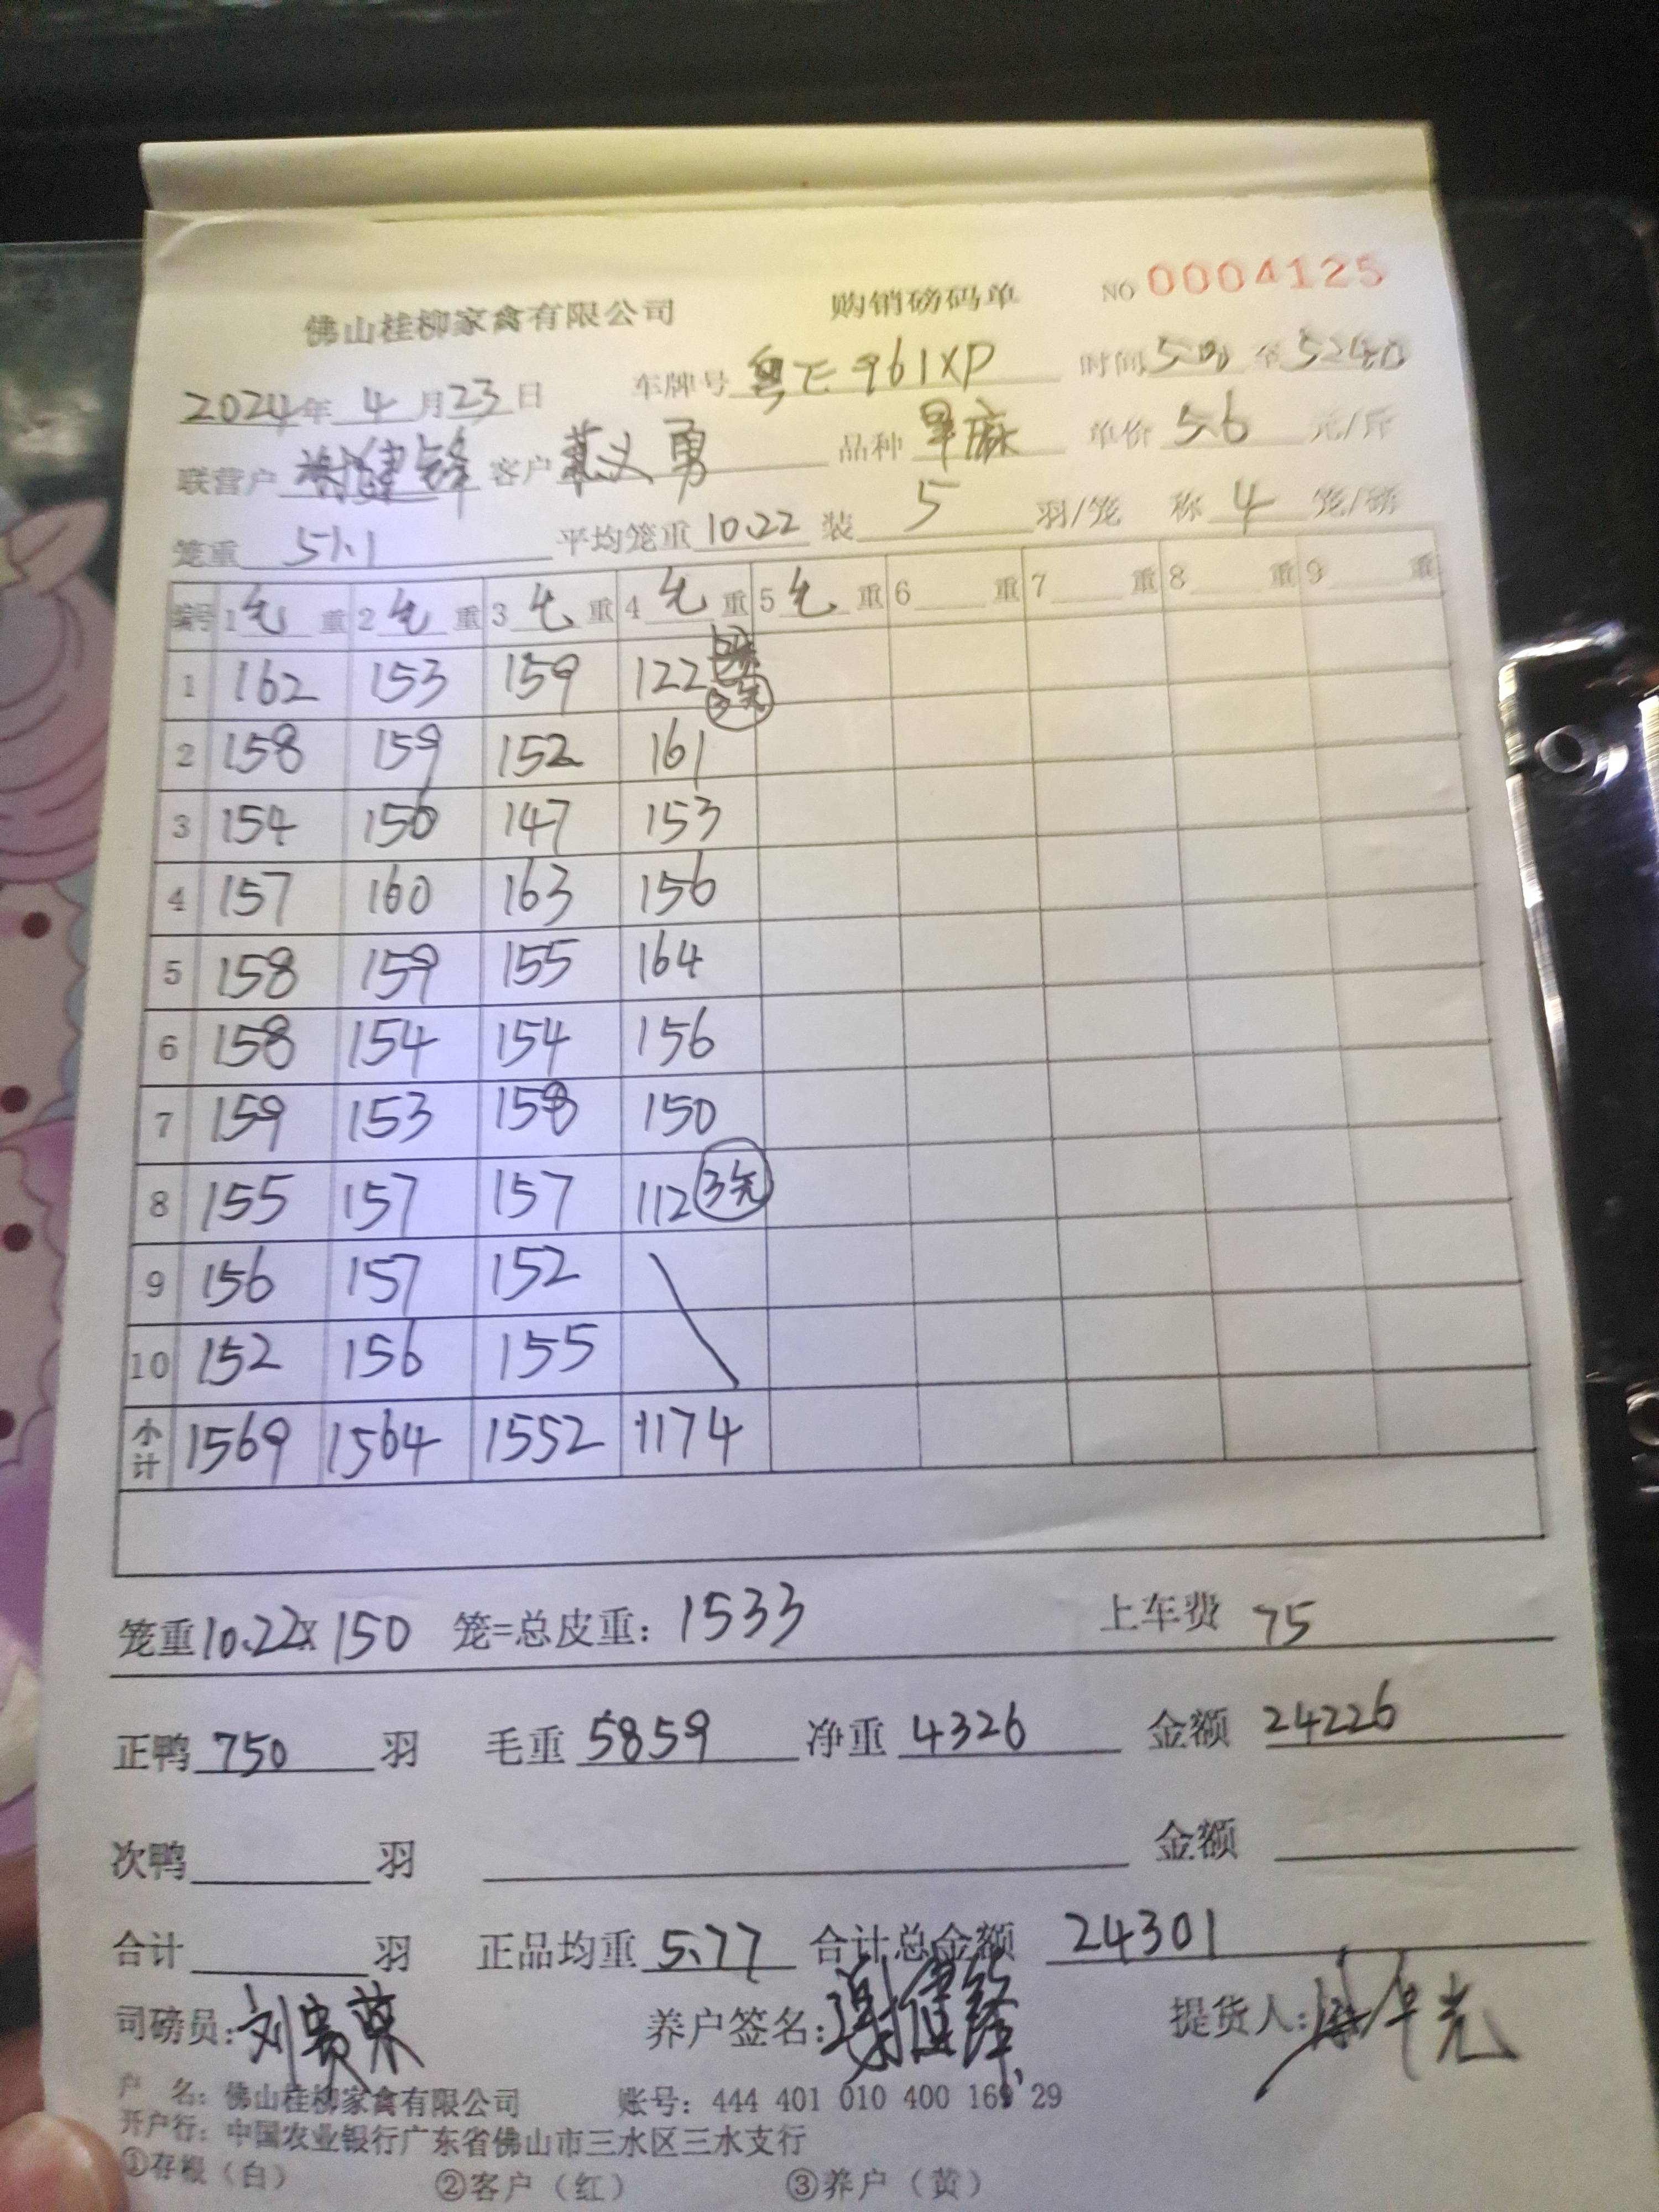 佛山桂柳家禽有限公司 购销磅码单 NO 0004125
2024年 4 月23日 车牌号 粤E 961XP 时间 至
联营户 谢健锋 客户 勇 品种 单价 5.6 元/斤
笼重 51.1 平均笼重 10.22 装 5 羽/笼 称 4 笼/磅
编号 1 毛 重 2 毛 重 3 毛 重 4 毛 重 5 毛 重 6 重 7 重 8 重 9 重
1 162 153 159 122 3笼
2 158 159 152 161
3 154 150 147 153
4 157 160 163 156
5 158 159 155 164
6 158 154 154 156
7 159 153 158 150
8 155 157 157 112 3笼
9 156 157 152
10 152 156 155
小计 1569 1564 1552 1174
笼重 10.22 x 150 笼=总皮重: 1533 上车费 75
正鸭 750 羽 毛重 5859 净重 4326 金额 24226
次鸭 羽 金额
合计 羽 正品均重 5.77 合计总金额 24301
司磅员: 养户签名: 谢健锋 提货人:
户 名: 佛山桂柳家禽有限公司 账号: 444 401 010 400 169 29
开户行: 中国农业银行广东省佛山市三水区三水支行
①存根(白) ②客户(红) ③养户(黄)